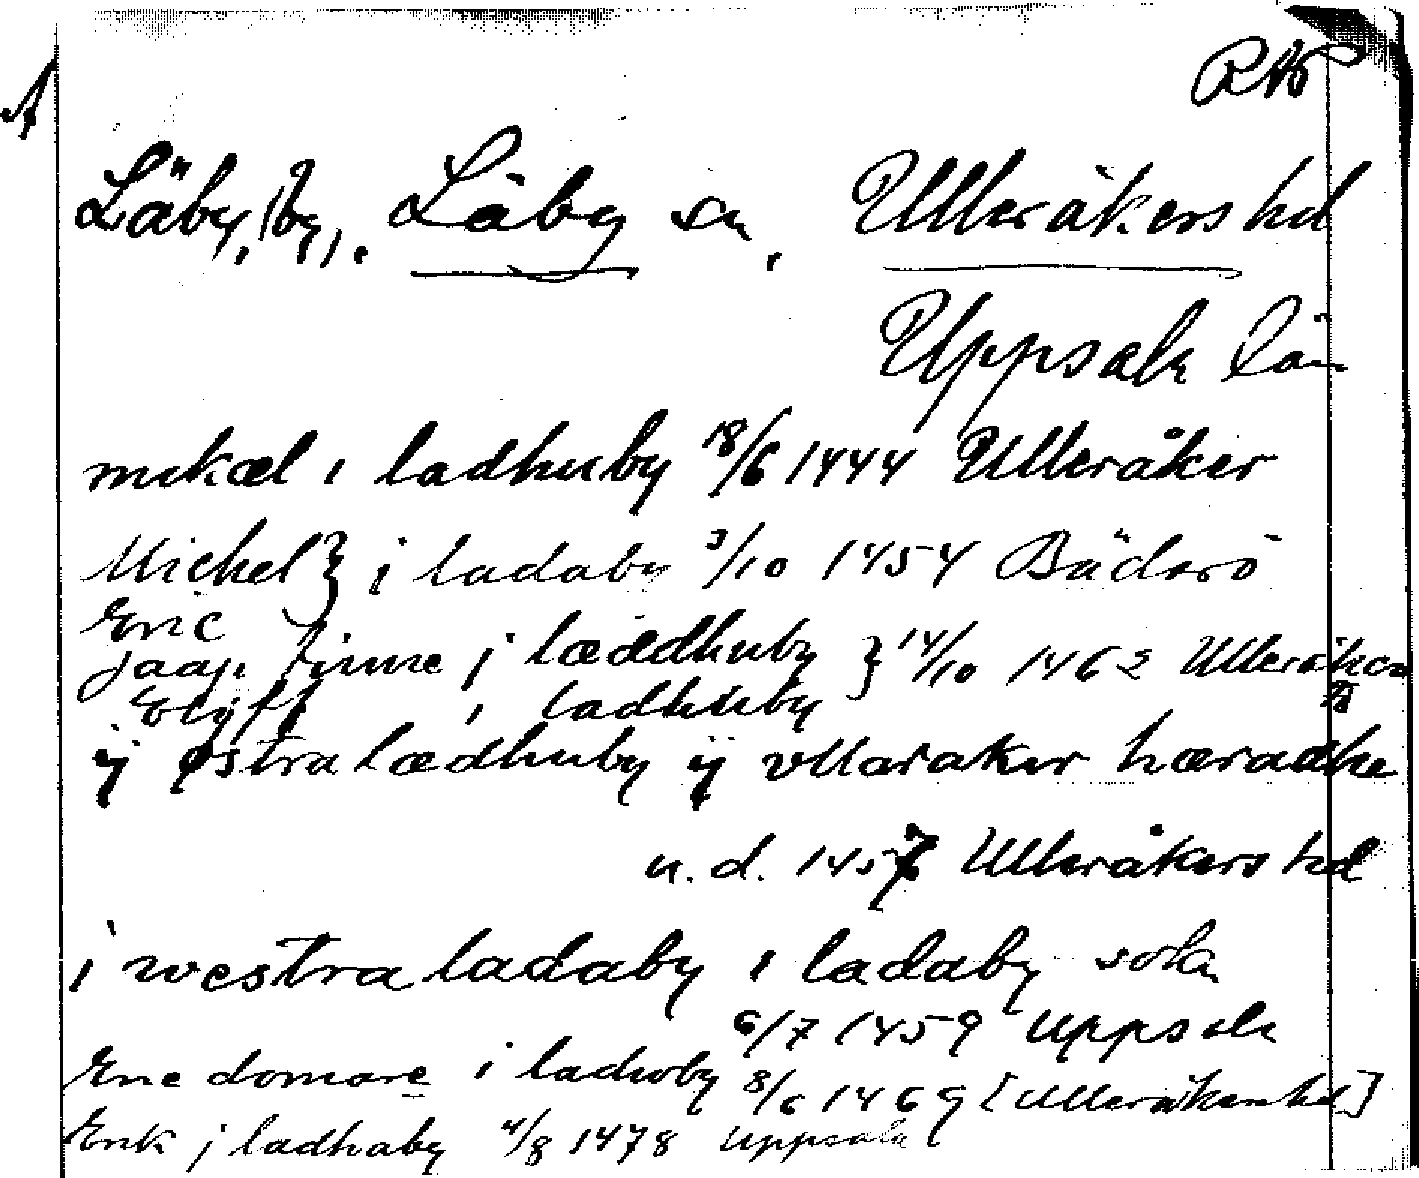 A
Läby, by, Läby sn, Ulleråkers hd
Uppsala län
mikæl i ladhuby 18/6 1444 Ulleråker
Michel } i ladaby 3/10 1454 Bäderö
Eric
Jaap finne j læddhuby } 14/10 1462 Ulleråker
i ladhuby
ij østra lædhuby ij vllaraker hæradhe
u. d. 1457 Ulleråkers hd
i westra ladaby i ladaby sokn
6/7 1459 Uppsala
Eric domare i ladwby 8/6 1469 [Ulleråkers hd]
Erik j ladhaby 4/8 1478 Uppsala